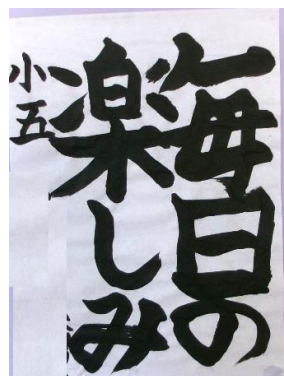 毎日の
楽しみ
小五